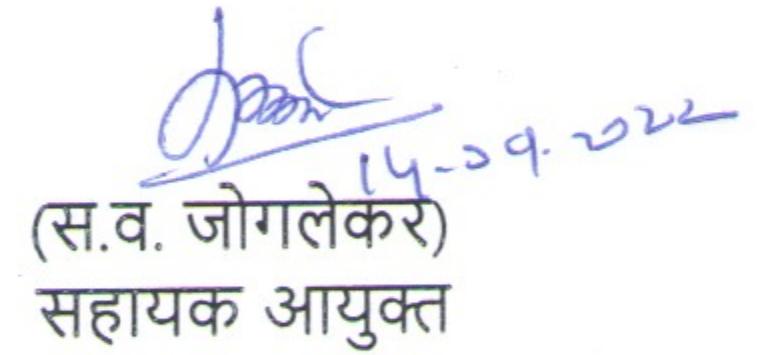 14-09-2022
(स.व. जोगलेकर)
सहायक आयुक्त